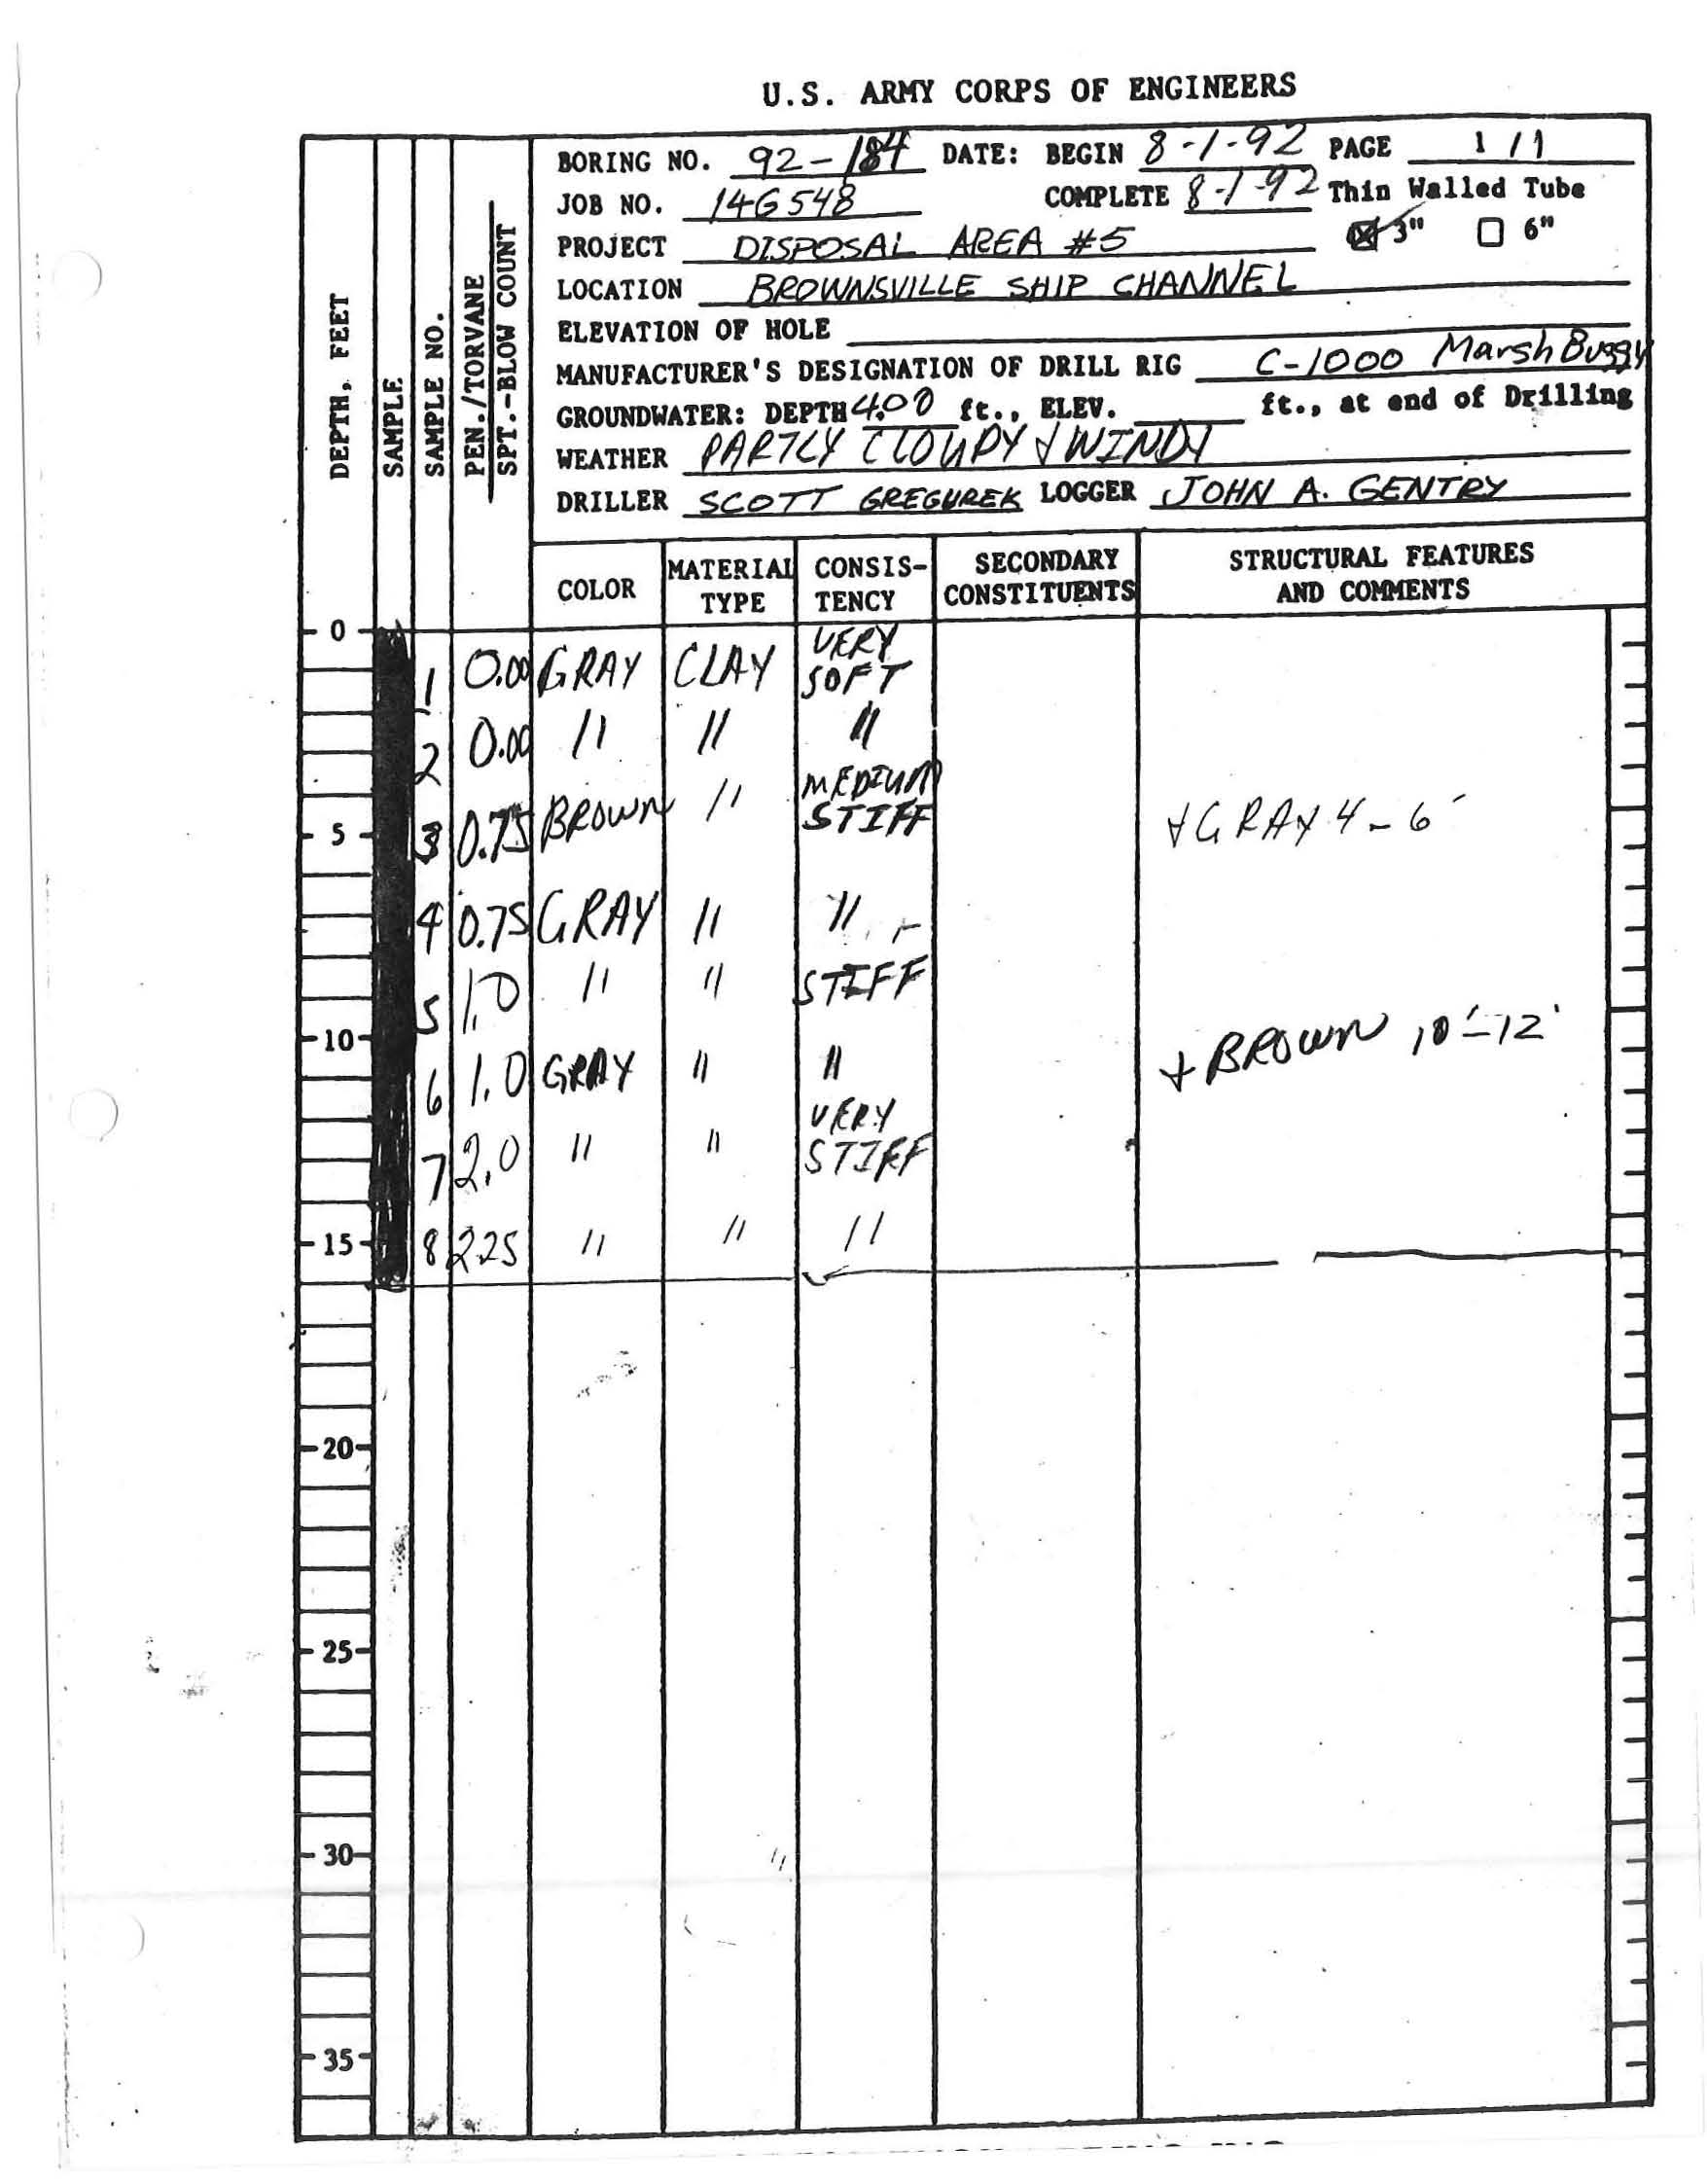 U.S. ARMY CORPS OF ENGINEERS
BORING NO. 92-184 DATE: BEGIN 8-1-92 PAGE 1/1
JOB NO. 14G548 COMPLETE 8-1-92 Thin Walled Tube
PROJECT DISPOSAL AREA #5 ☒ 3" ☐ 6"
LOCATION BROWNSVILLE SHIP CHANNEL
ELEVATION OF HOLE
MANUFACTURER'S DESIGNATION OF DRILL RIG C-1000 Marsh Buggy
GROUNDWATER: DEPTH 4.00 ft., ELEV. ft., at end of Drilling
WEATHER PARTLY CLOUDY & WINDY
DRILLER SCOTT GREGUREK LOGGER JOHN A. GENTRY
DEPTH, FEET
SAMPLE
SAMPLE NO.
PEN./TORVANE
SPT.-BLOW COUNT
COLOR
MATERIAL TYPE
CONSIS-
TENCY
SECONDARY CONSTITUENTS
STRUCTURAL FEATURES
AND COMMENTS
0
1 0.00 GRAY CLAY VERY SOFT
2 0.00 " " "
5 3 0.75 BROWN " MEDIUM STIFF & GRAY 4-6'
4 0.75 GRAY " "
5 1.0 " " STIFF
10
6 1.0 GRAY " " & BROWN 10'-12'
7 2.0 " " VERY STIFF
15 8 2.25 " " "
20
25
30
35